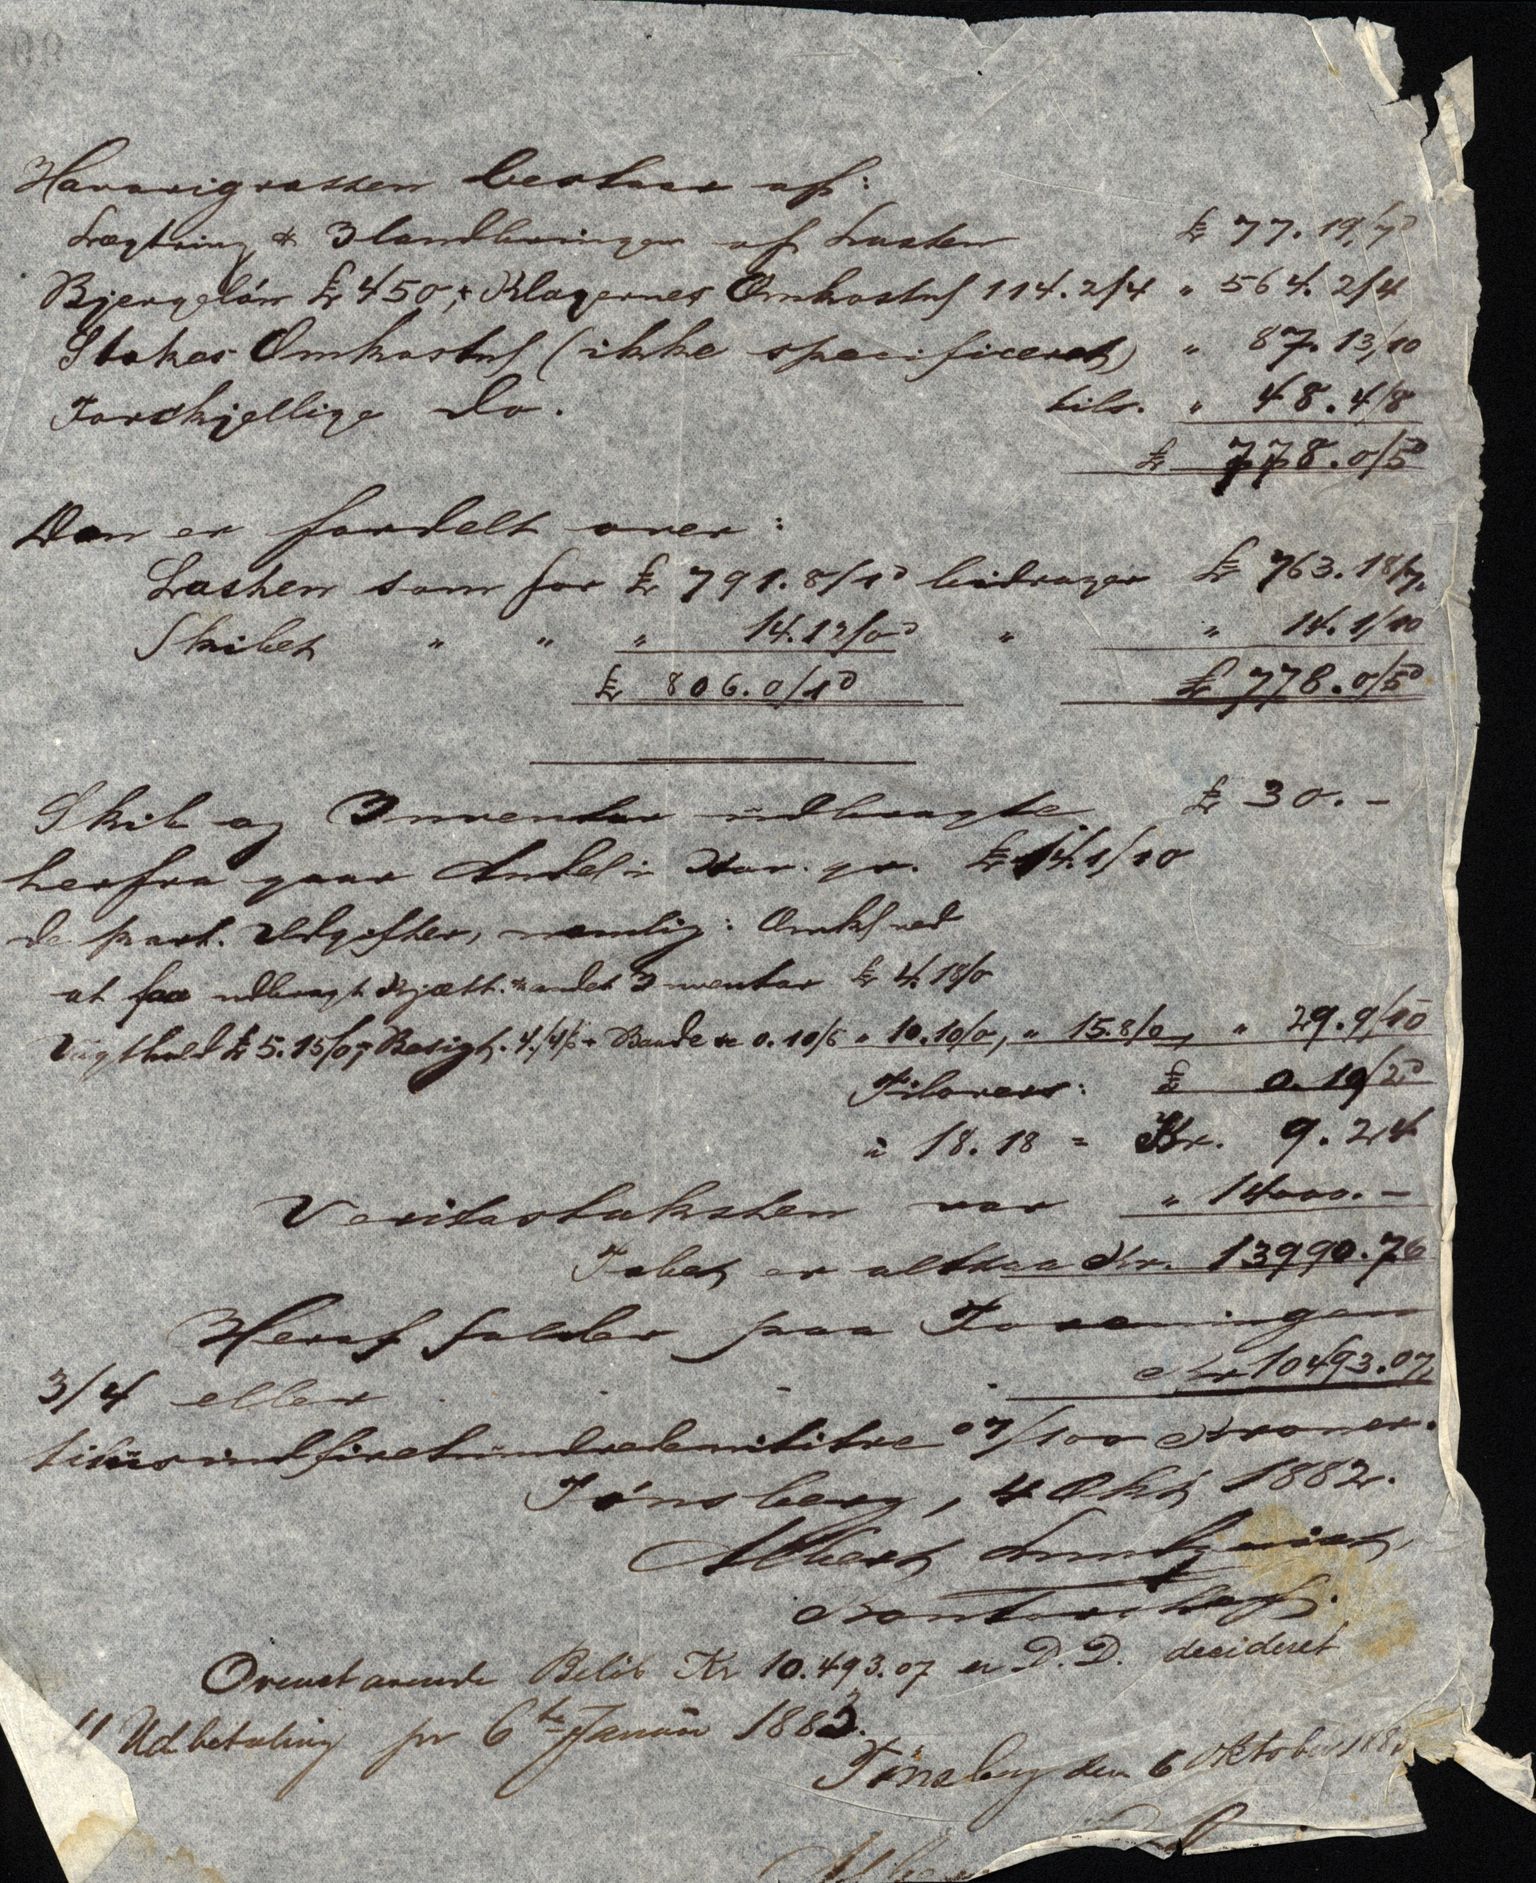 Havarigrossen bestaar af:
Lægtring & Ilandbringen af Lasten £ 77.19/7d
Bjergelón £ 450,+ Klagernes Omkostnf 114.2/4 " 564.2/4
Stokes Omkostnf (ikke specificeret) " 87.13/10
Forskjellige do. tils. " 48.4/8
£ 778.0/5d
Den er fordelt over:
Lasten som for £ 791.8/1d bidrager £ 763.18/7.
Skibet " " " 14.12/0d " " 14.1/10
£ 806.0/1d £ 778.0/5d
Skib og Inventar udbragte £ 30.-
herfra gaar Andel i Hav. gr. £ 14.1/10
de part. Udgifter, nemlig: Omkf ved
at faa udbragt Kjætt. & andet Inventar £ 4.18/0
Vagthold £ 5.15/0,+ Besigt. 4.4/6 + Baade &c 0.10/6 " 10.10/0, " 15.8/0, " 29.9/10
Tilovers: £ 0.10/2d
à 18.18 = Kr. 9.24
Veritastaksten var " 14000.-
Tabet er altsaa Kr. 13990.76
Heraf falder paa Foreningen
3/4 eller Kr 10493.07
titusindfirehundredenititre 07/100 Kroner.
Tónsberg, 4 Okt 1882.
Albert
Kontorchef.
Ovenstaaende Belöb Kr 10.493.07 er D.D. decideret
til Udbetaling pr 6te Januar 1883.
Tönsberg den 6 Oktober 188